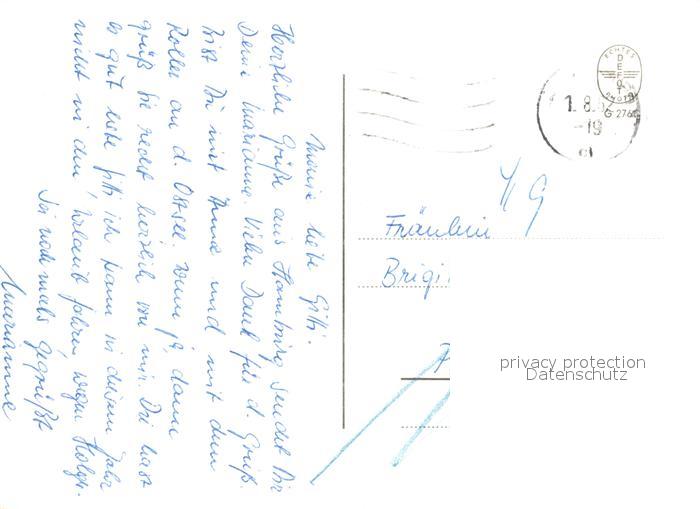 Meine liebe Gitti.
Herzliche Grüße aus Hamburg sendet Dir
Deine Marianne. Vielen Dank für d. Grüße.
Bist Du mit und mit dem
Roller an d. Ostsee. Wenn ja, dann
grüß sie recht herzlich von mir. Du hast
es gut liebe Gitti ich kann in diesem Jahr
nicht in den Urlaub fahren wegen
Sei nochmals gegrüßt
Marianne
ECHTES
DEFOT
PHOTO
G 276
1.8.
-19
Fräulein
Brigi
privacy protection
Datenschutz